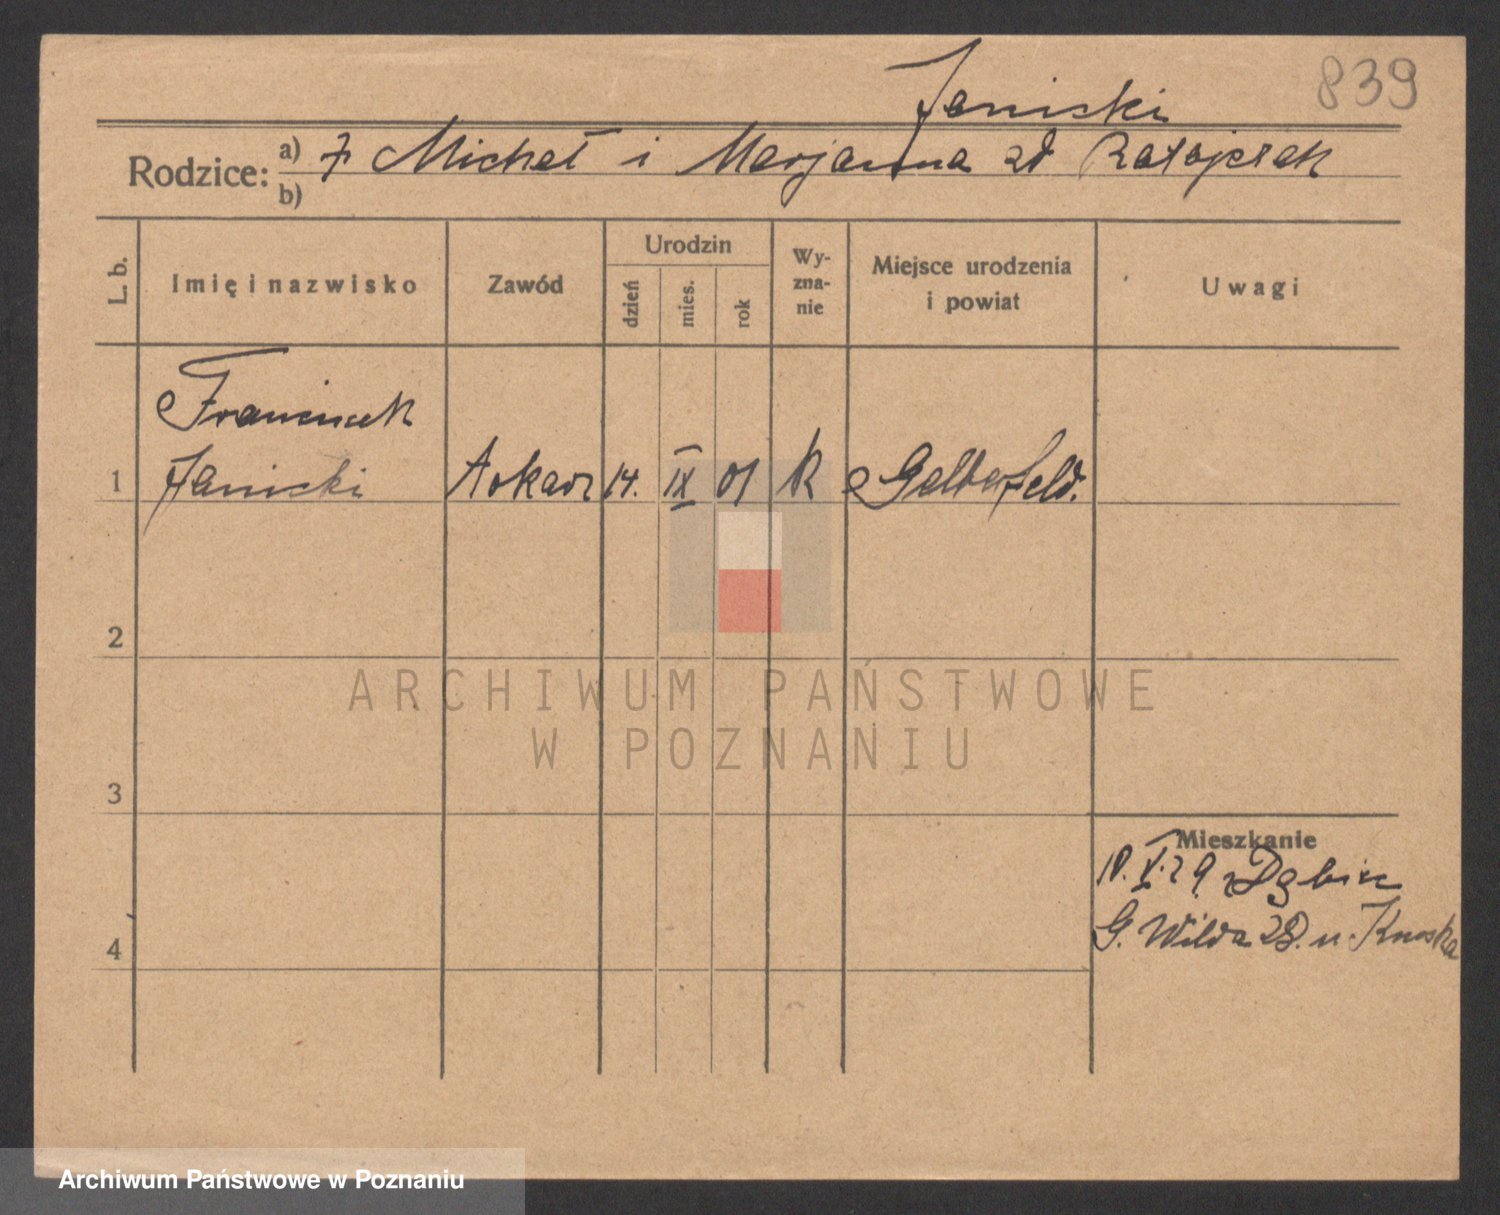 Janicki
839
Rodzice: a) Michał i Marjanna zd Ratajczak
b)
L. b.
Imię i nazwisko
Zawód
Urodzin
dzień
mies.
rok
Wy-
zna-
nie
Miejsce urodzenia
i powiat
Uwagi
Franciszek
1 Janicki 14. IX 01 R Gelderfeld.
2
ARCHIWUM PAŃSTWOWE
W POZNANIU
3
Mieszkanie
18. X. 29 Dębiec
4 G. Wilda 28. u.
Archiwum Państwowe w Poznaniu